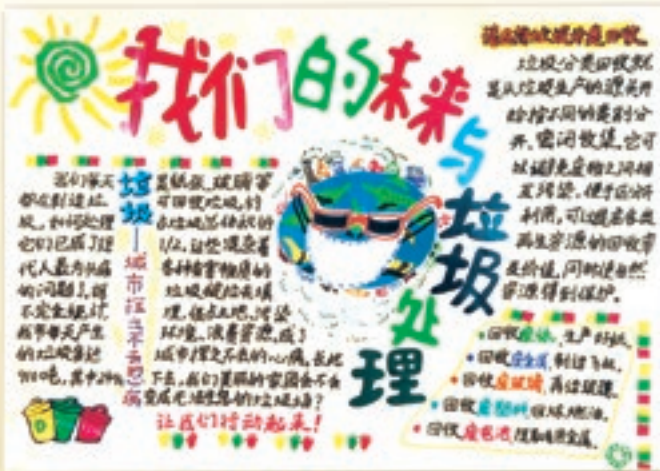 我们的未来与垃圾处理
我们每天
都在制造垃
圾，如何处理
它们已成了现
代人最为头痛
的问题！据
不完全统计，
我市每天产生
的垃圾高达
910吨，其中
垃圾——城市挥之不去的心病
是纸张、玻璃等
可回收垃圾，约
占垃圾总体积的
1/2。这些混杂着
各种有害物质的
垃圾被拾去填
埋，侵占土地，污染
环境，浪费资源，成了
城市挥之不去的心病。长此
下去，我们美丽的家园会不会
变成无法生息的垃圾场？
让我们行动起来！
垃圾分类回收就
是从垃圾生产的源头开
始按不同的类别分
开，密闭收集，它可
以避免废物之间相
互污染，便于区分所
利用，可以提高各类
再生资源的回收率
及价值，同时使自然
资源得到保护。
回收废纸，生产好纸。
回收废金属，制造飞机。
回收废玻璃，再造玻璃。
回收废塑料，回炼燃油。
回收废电池，提取稀有金属。